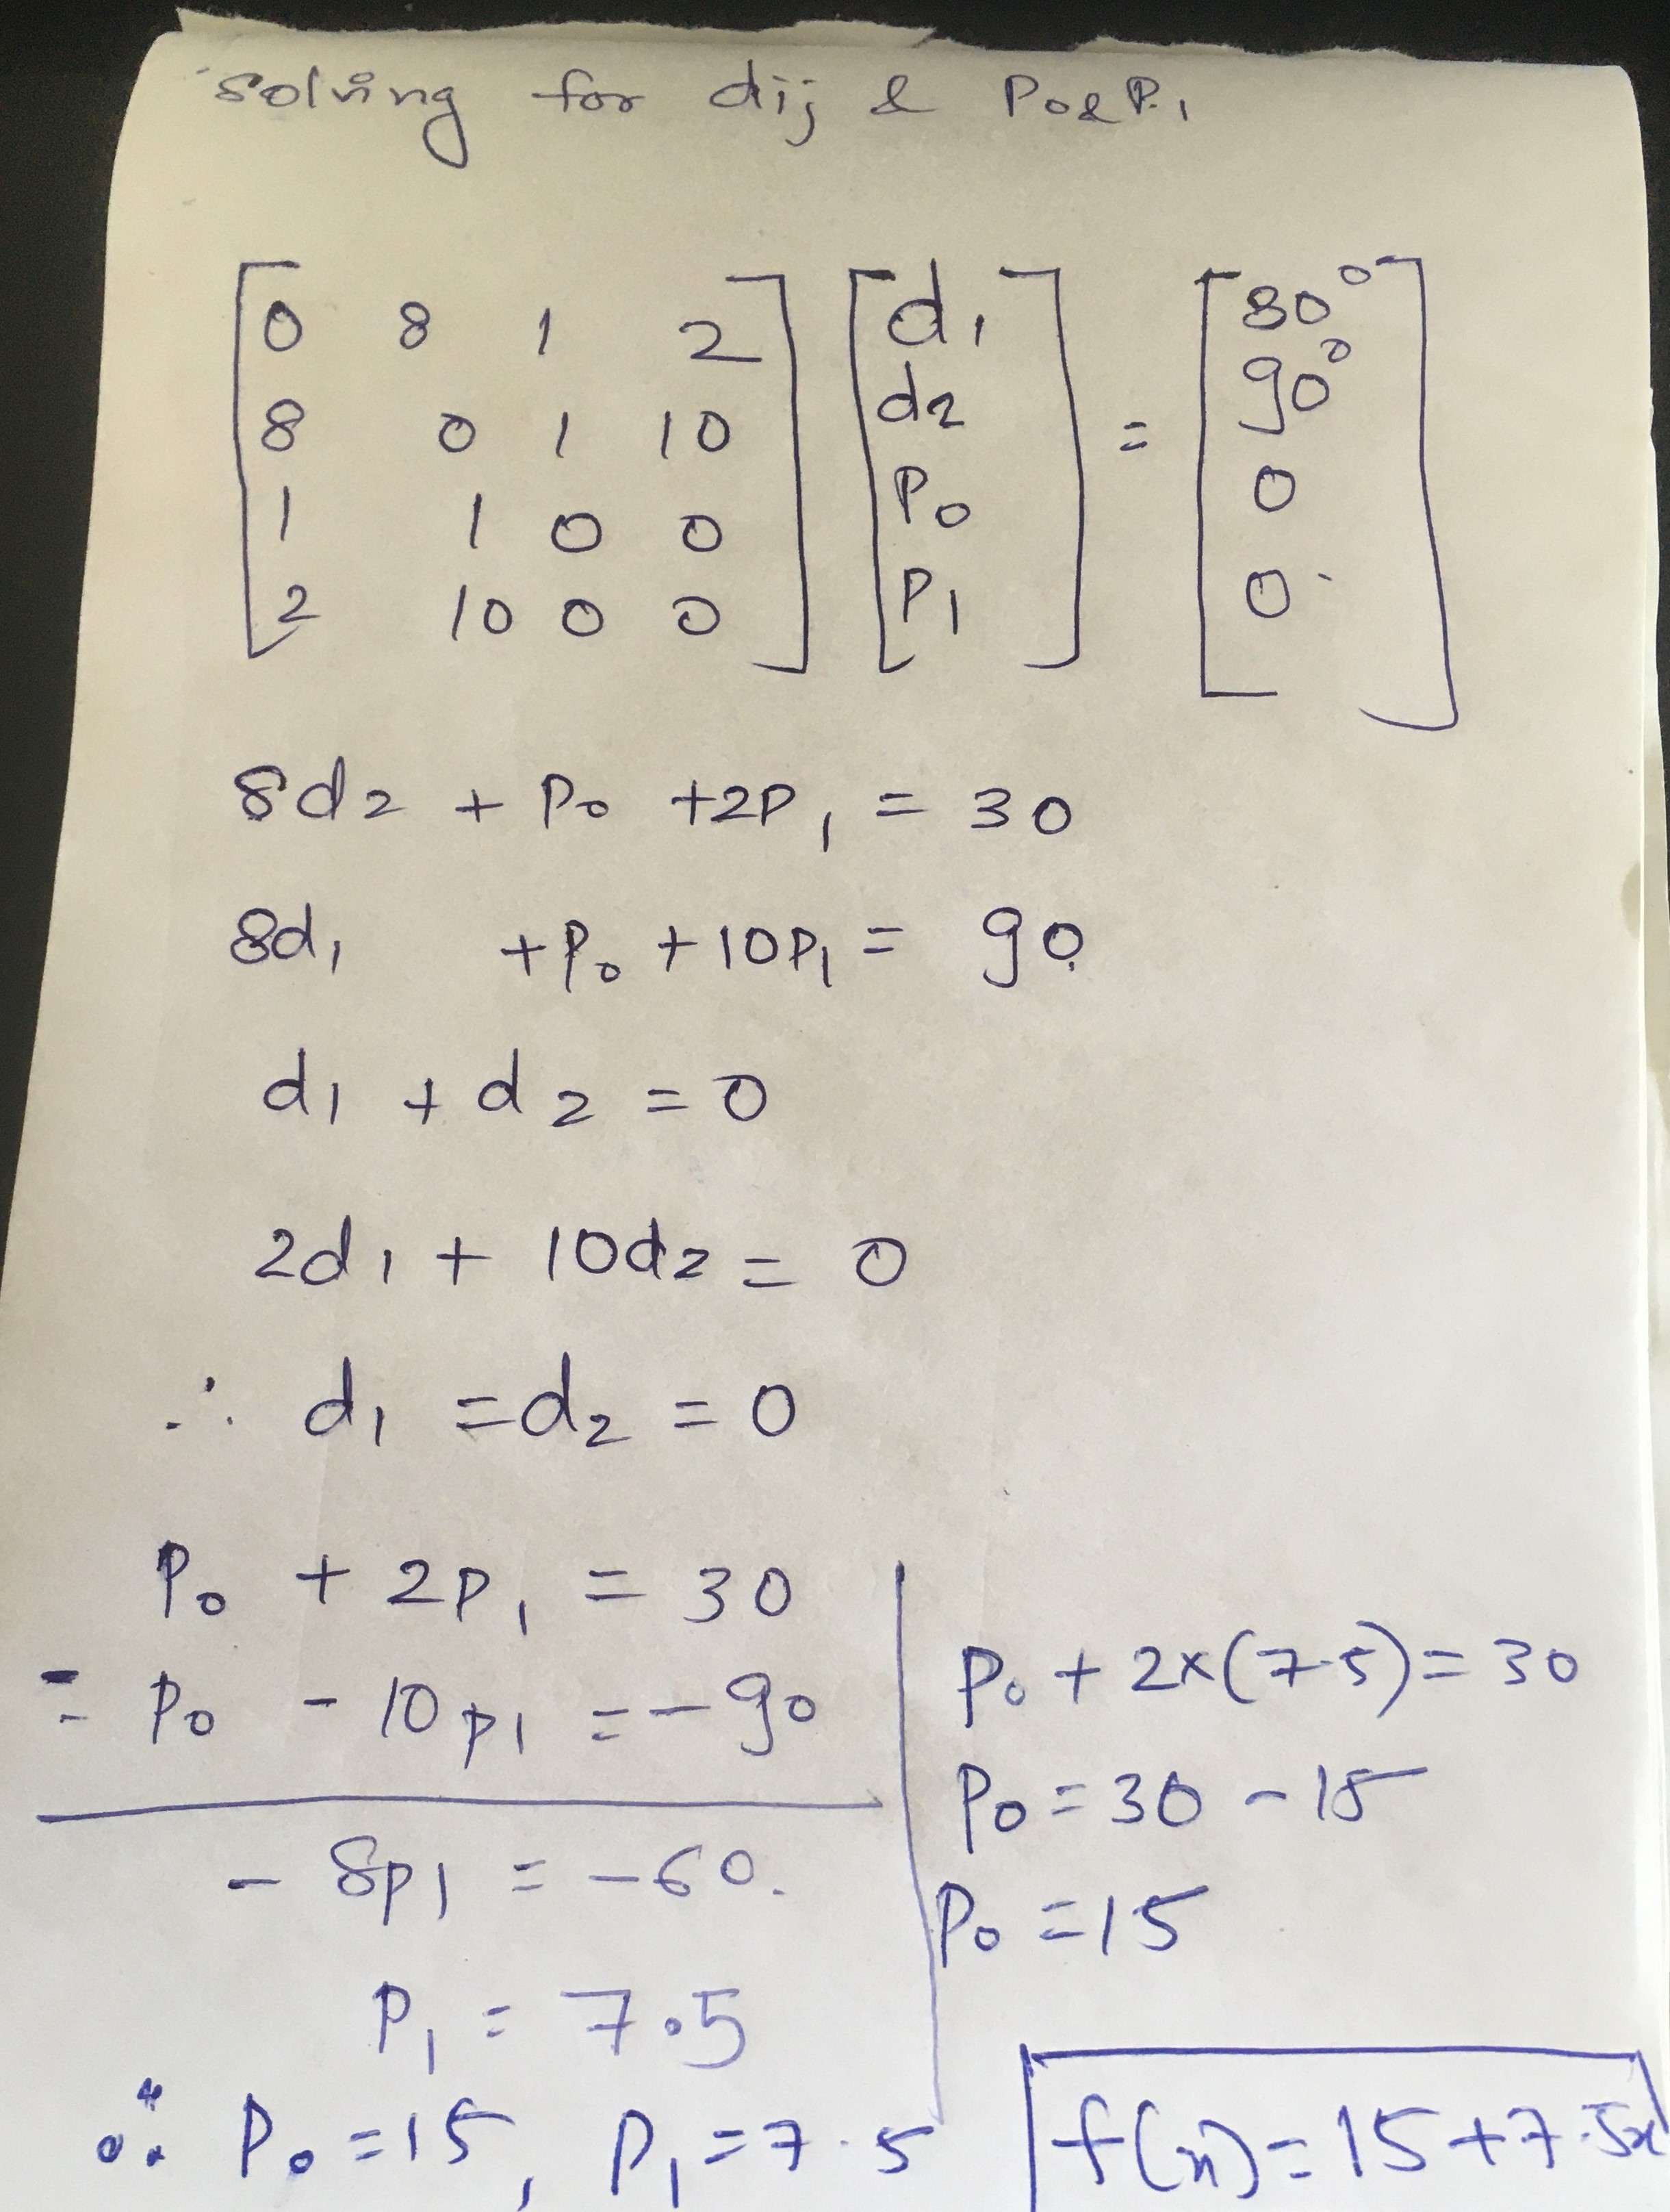 Solving for dij & P0&P1
[0 8 1 2] [d1] = [30°]
[8 0 1 10] [d2] [90°]
[1 1 0 0] [P0] [0]
[2 10 0 0] [P1] [0]
8d2 + P0 +2P1 = 30
8d1 +P0 + 10P1 = 90
d1 + d2 = 0
2d1 + 10d2 = 0
∴ d1 = d2 = 0
P0 + 2P1 = 30
= P0 - 10P1 = -90
- 8P1 = -60.
P1 = 7.5
P0 + 2x(7.5) = 30
P0 = 30 - 15
P0 = 15
∴ P0 = 15, P1 = 7.5
f(x) = 15 + 7.5x